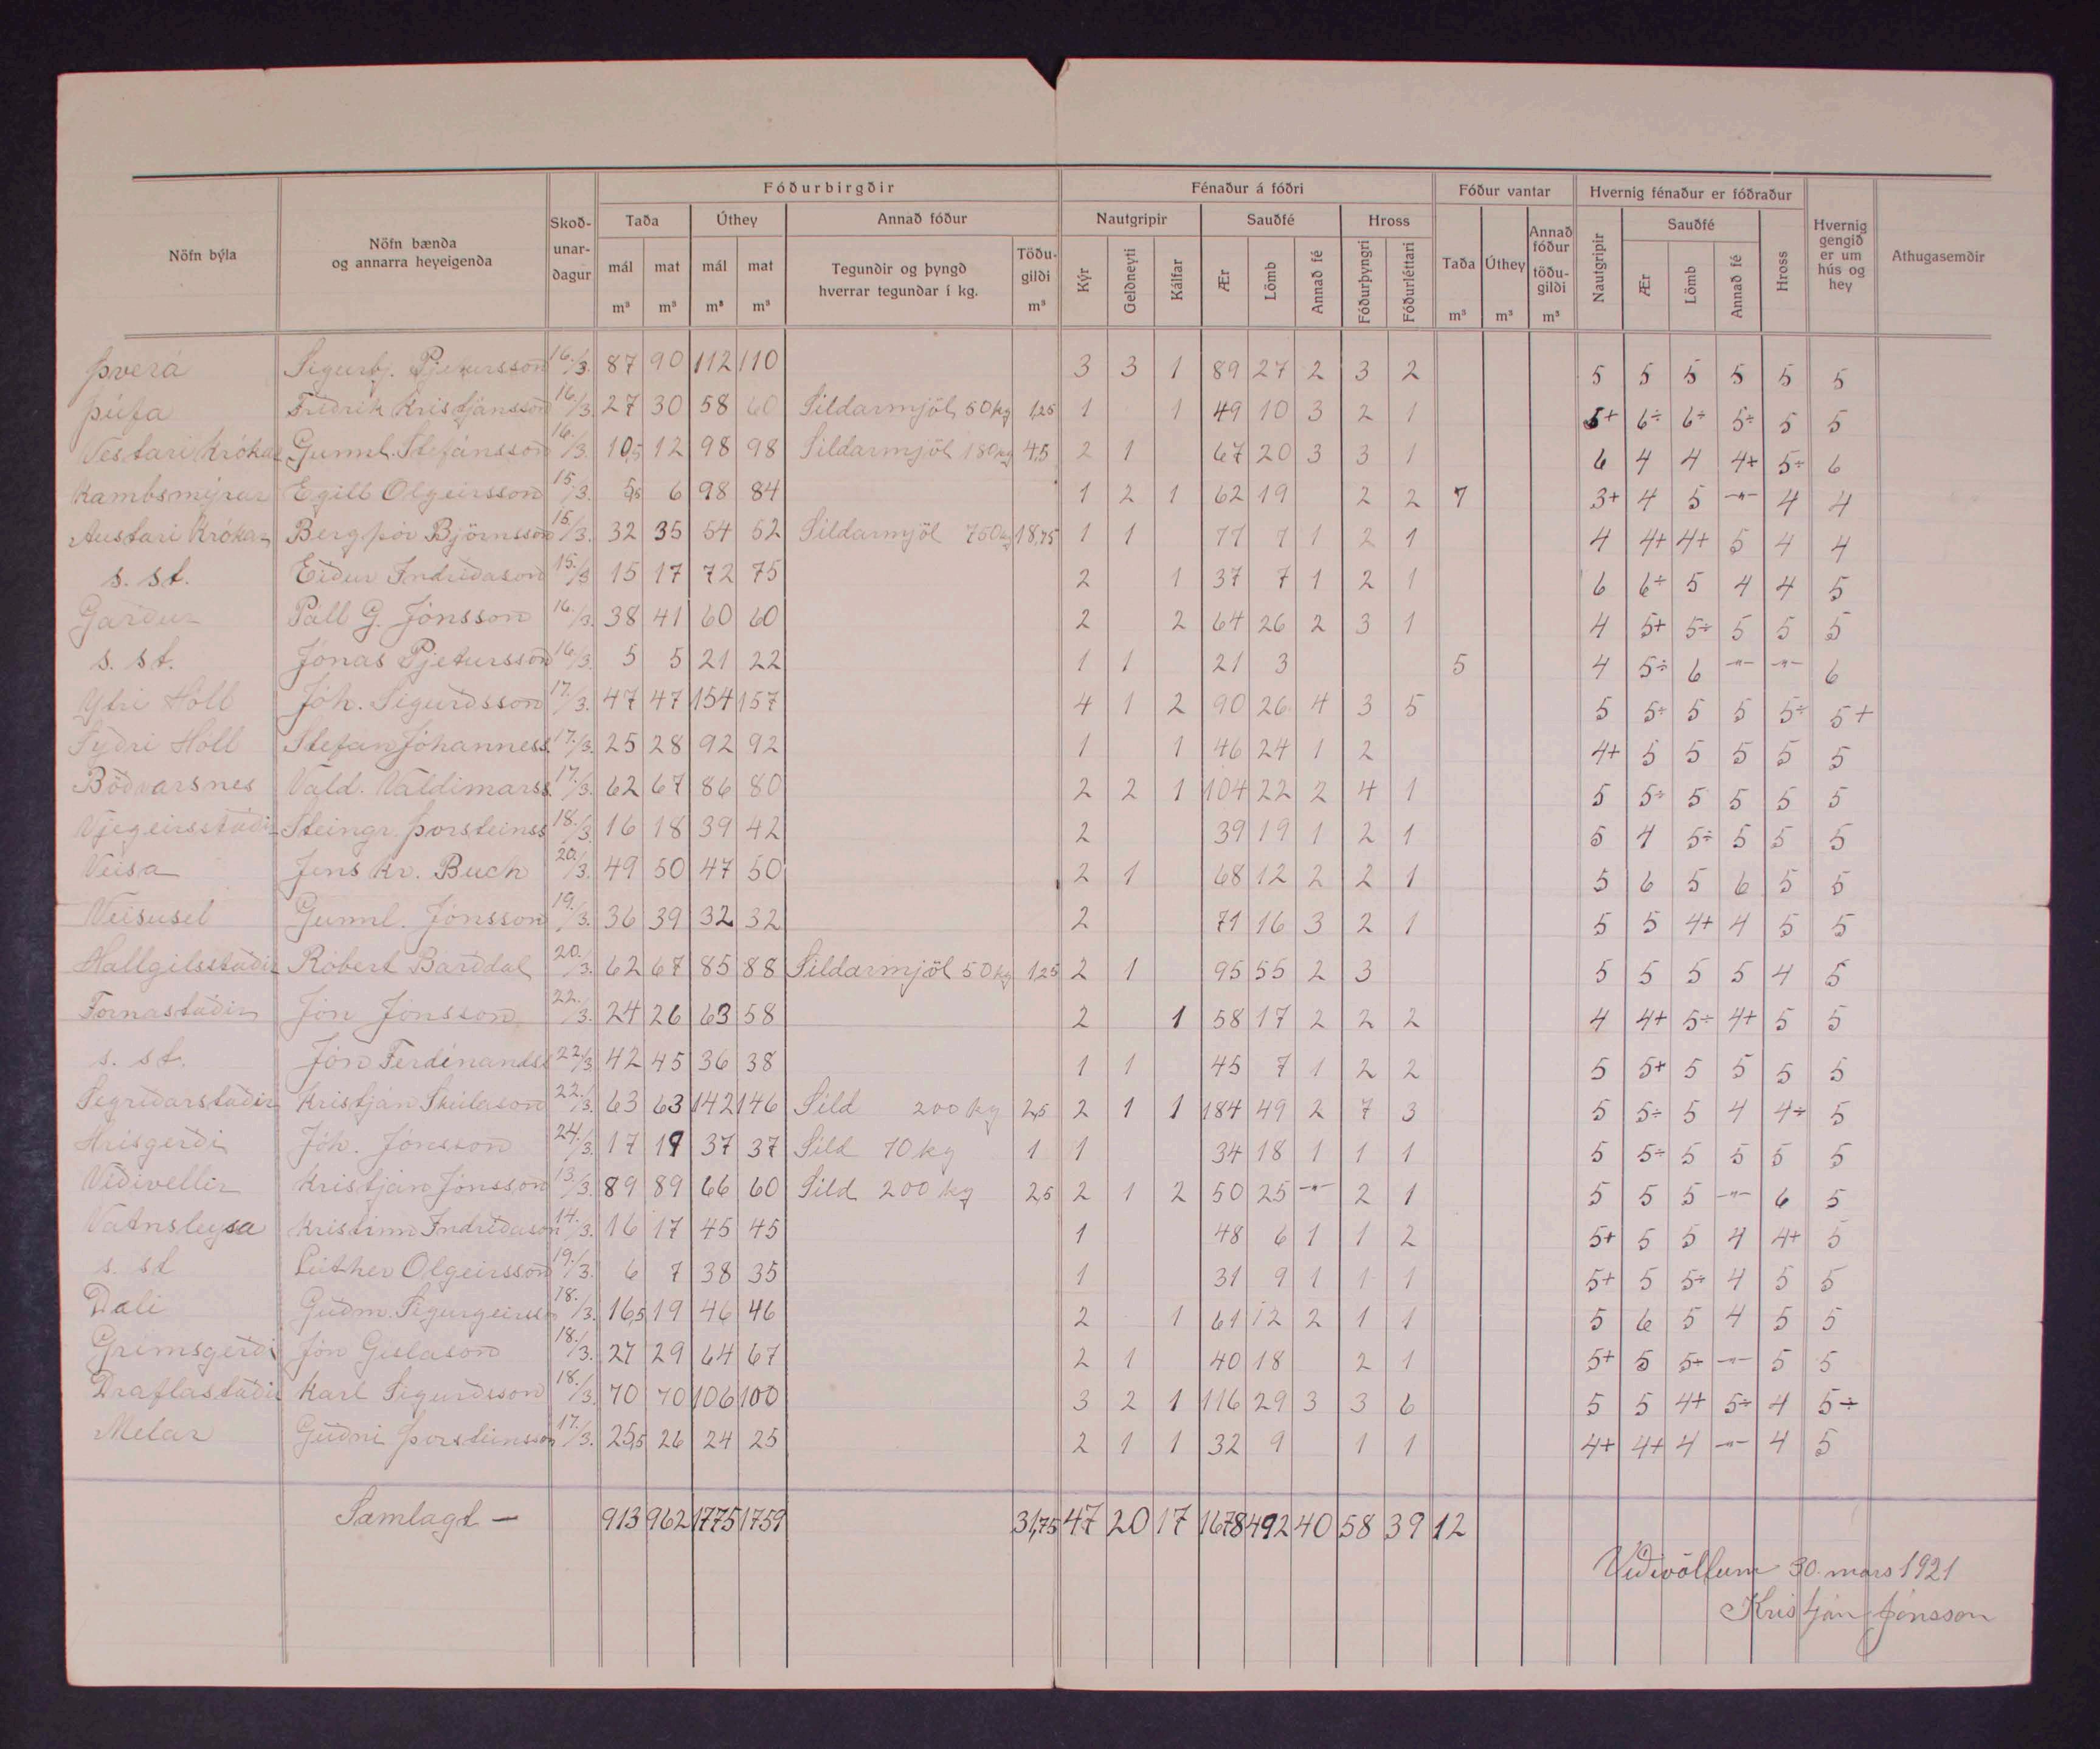 Nöfn býla | Nöfn bænda og annarra heyeigenda | Skoðunardagur | Fóðurbirgðir | Fénaður á fóðri | Fóður vantar | Hvernig fénaður er fóðraður | Hvernig gengið er um hús og hey | Athugasemdir
Taða | Úthey | Annað fóður | Nautgripir | Sauðfé | Hross | Taða | Úthey | Annað fóður töðugildi | Nautgripir | Sauðfé | Hross
mál | mat | mál | mat | Tegundir og þyngd hverrar tegundar í kg. | Töðugildi | Kýr | Geldneyti | Kálfar | Ær | Lömb | Annað fé | Fóðurþyngri | Fóðurléttari | Ær | Lömb | Annað fé
m³ m³ m³ m³ m³ m³ m³ m³
Þverá Sigurbj. Pjetursson 16./3. 87 90 112 110 3 3 1 89 27 2 3 2 5 5 5 5 5 5
Þúfa Friðrik Kristjánsson 16./3. 27 30 58 60 Síldarmjöl 50 kg 1,25 1 1 49 10 3 2 1 5+ 6÷ 6÷ 5÷ 5 5
Vestari Krókar Gunnl. Stefánsson 16./3. 10,5 12 98 98 Síldarmjöl 180 kg 4,5 2 1 67 20 3 3 1 6 4 4 4+ 5÷ 6
Kambsmýrar Egill Olgeirsson 15./3. 5,5 6 98 84 1 2 1 62 19 2 2 7 3+ 4 5 -"- 4 4
Austari Krókar Bergþór Björnsson 15./3. 32 35 54 52 Síldarmjöl 750 kg 18,75 1 1 77 7 1 2 1 4 4+ 4+ 5 4 4
s. st. Eiður Indriðason 15./3 15 17 72 75 2 1 37 7 1 2 1 6 6÷ 5 4 4 5
Garður Páll G. Jónsson 16./3. 38 41 60 60 2 2 64 26 2 3 1 4 5+ 5÷ 5 5 5
s. st. Jónas Pjetursson 16./3. 5 5 21 22 1 1 21 3 5 4 5÷ 6 -"- -"- 6
Ytri Hóll Jóh. Sigurðsson 17./3. 47 47 154 157 4 1 2 90 26 4 3 5 5 5÷ 5 5 5÷ 5+
Syðri Hóll Stefán Jóhanness. 17./3. 25 28 92 92 1 1 46 24 1 2 4+ 5 5 5 5 5
Böðvarsnes Vald. Valdimarss. 17./3. 62 67 86 80 2 2 1 104 22 2 4 1 5 5÷ 5 5 5 5
Vjegeirsstaðir Steingr. Þorsteinss 18./3. 16 18 39 42 2 39 19 1 2 1 5 4 5÷ 5 5 5
Veisa Jens Kr. Buch 20./3. 49 50 47 50 2 1 68 12 2 2 1 5 6 5 6 5 5
Veisusel Gunnl. Jónsson 19./3. 36 39 32 32 2 71 16 3 2 1 5 5 4+ 4 5 5
Hallgilsstaðir Róbert Bárðdal 20./3. 62 67 85 88 Síldarmjöl 50 kg 1,25 2 1 95 55 2 3 5 5 5 5 4 5
Fornastaðir Jón Jónsson 22./3. 24 26 63 58 2 1 58 17 2 2 2 4 4+ 5÷ 4+ 5 5
s. st. Jón Ferdínandss 22./3 42 45 36 38 1 1 45 7 1 2 2 5 5+ 5 5 5 5
Sigríðarstaðir Kristján Skúlason 22./3. 63 63 142 146 Síld 200 kg 2,5 2 1 1 184 49 2 7 3 5 5÷ 5 4 4÷ 5
Hrísgerði Jóh. Jónsson 24./3. 17 19 37 37 Síld 70 kg 1 1 34 18 1 1 1 5 5÷ 5 5 5 5
Víðivellir Kristján Jónsson 13./3. 89 89 66 60 Síld 200 kg 2,5 2 1 2 50 25 -"- 2 1 5 5 5 -"- 6 5
Vatnsleysa Kristinn Indriðason 14./3. 16 17 45 45 1 48 6 1 1 2 5+ 5 5 4 4+ 5
s. st Lúther Olgeirsson 19./3. 6 7 38 35 1 31 9 1 1 1 5+ 5 5÷ 4 5 5
Dæli Guðm. Sigurgeirsson 18./3. 16,5 19 46 46 2 1 61 12 2 1 1 5 6 5 4 5 5
Grímsgerði Jón Gíslason 18./3. 27 29 64 67 2 1 40 18 2 1 5+ 5 5+ -"- 5 5
Draflastaðir Karl Sigurðsson 18./3. 70 70 106 100 3 2 1 116 29 3 3 6 5 5 4+ 5÷ 4 5÷
Melar Guðni Þorsteinsson 17./3. 25,5 26 24 25 2 1 1 32 9 1 1 4+ 4+ 4 -"- 4 5
Samlagt — 913 962 1775 1759 31,75 47 20 17 1678 492 40 58 39 12
Víðivöllum 30. mars 1921
Kristján Jónsson